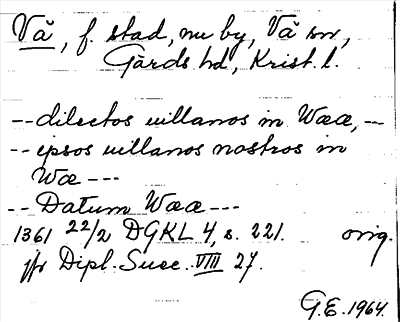 Vä, f. stad, nu by, Vä sn,
Gärds hd, Krist. l.
-- dilectos uillanos in Wææ, --
-- ipsos uillanos nostros in
Wæ ---
-- Datum Wææ ---
1361 22/2 DGKL 4, s. 221. orig.
jfr Dipl. Suec. VIII 27.
G.E. 1964.